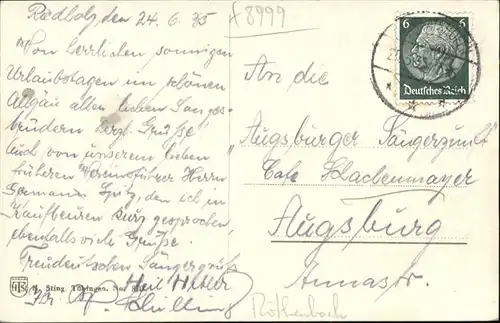 Radholz, den 24.6.35
Von herrlichen sonnigen
Urlaubstagen im schönen
Allgäu allen lieben Sanges-
brüdern herzl. Grüße!
Auch von unserem lieben
früheren Vereinsführer Herrn
Germann Spitz, den ich in
Kaufbeuren kurz gesprochen,
ebenfalls viele Grüße.
Treudeutschen Sängergruß
Heil Hitler
H. Sting, Tübingen. No.
8999
6 6
Deutsches Reich
An die
"Augsburger Sängerzunft"
Cafe Hackenmayer
Augsburg
Annastr.
Röthenbach